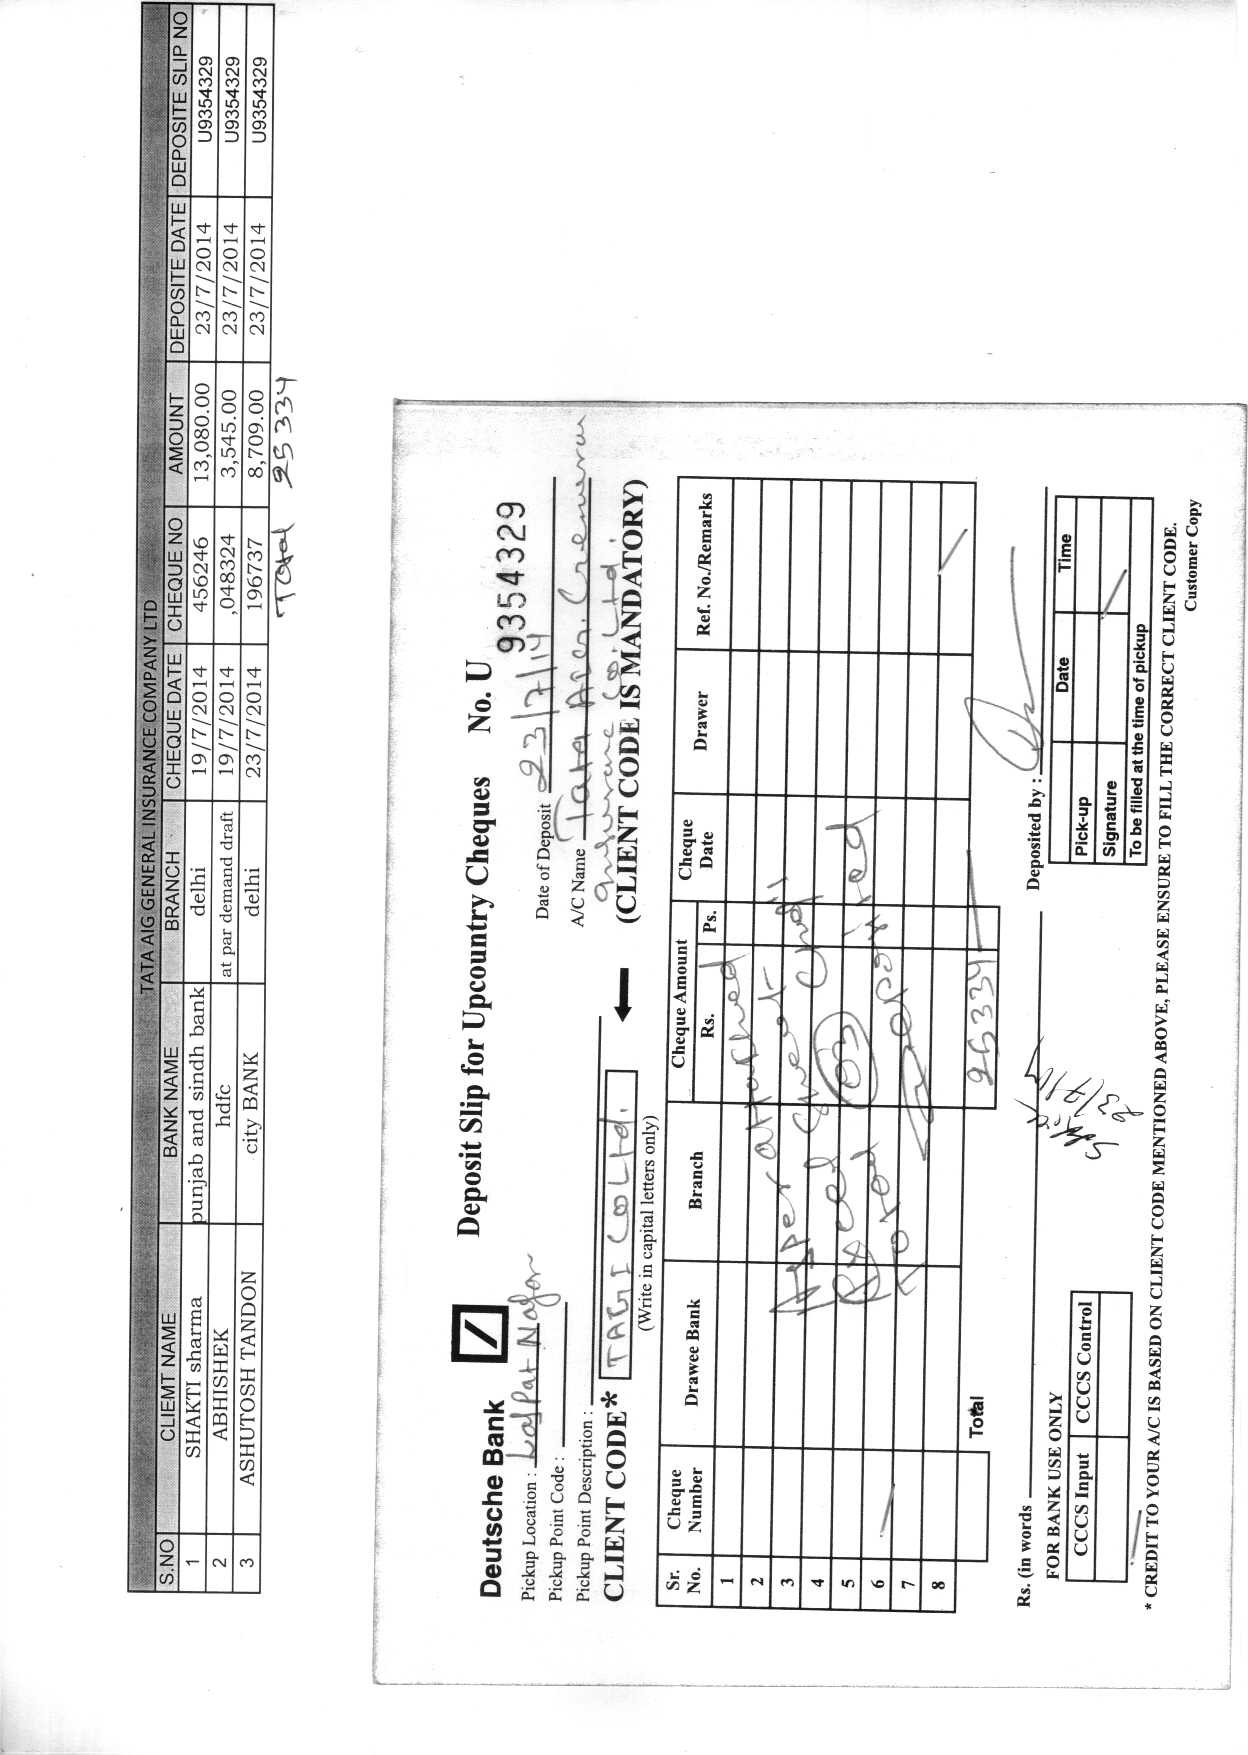 TATA AIG GENERAL INSURANCE COMPANY LTD
S.NO CLIEMT NAME BANK NAME BRANCH CHEQUE DATE CHEQUE NO AMOUNT DEPOSITE DATE DEPOSITE SLIP NO
1 SHAKTI sharma punjab and sindh bank delhi 19/7/2014 456246 13,080.00 23/7/2014 U9354329
2 ABHISHEK hdfc at par demand draft 19/7/2014 ,048324 3,545.00 23/7/2014 U9354329
3 ASHUTOSH TANDON city BANK delhi 23/7/2014 196737 8,709.00 23/7/2014 U9354329
Total 25334
Deutsche Bank Deposit Slip for Upcountry Cheques No. U 9354329
Pickup Location : Lajpat Nagar Date of Deposit 23/7/14
Pickup Point Code : A/C Name Tata AIG General
Pickup Point Description : Insurance Co. Ltd.
CLIENT CODE* TAGI CO Ltd. (CLIENT CODE IS MANDATORY)
(Write in capital letters only)
Sr. No. Cheque Number Drawee Bank Branch Cheque Amount Rs. Ps. Cheque Date Drawer Ref. No./Remarks
1
2
3
4
5
6
7
8
As per attached
Excel sheet
Total 03
Total 25334
Rs. (in words Deposited by :
23/7/14
FOR BANK USE ONLY
CCCS Input CCCS Control
Date Time
Pick-up
Signature
To be filled at the time of pickup
* CREDIT TO YOUR A/C IS BASED ON CLIENT CODE MENTIONED ABOVE, PLEASE ENSURE TO FILL THE CORRECT CLIENT CODE.
Customer Copy